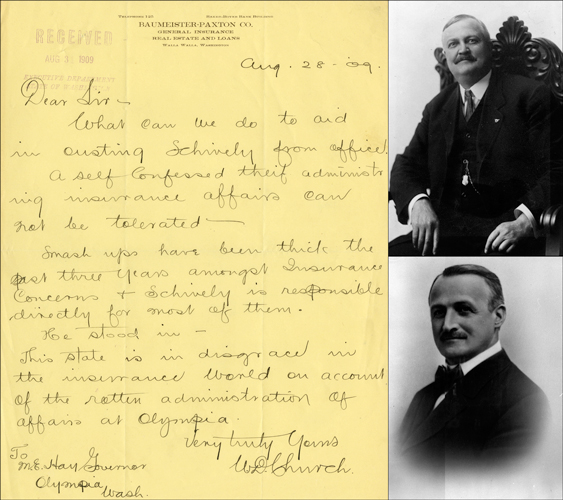 TELEPHONE 140
BAKER-BOYER BANK BUILDING
BAUMEISTER-PAXTON CO.
GENERAL INSURANCE
REAL ESTATE AND LOANS
WALLA WALLA, WASHINGTON
RECEIVED
AUG 31 1909
EXECUTIVE DEPARTMENT
Aug. 28-09.
Dear Sir-
What can we do to aid
in ousting Schively from office.
A self confessed theif administr
ing insurance affairs can
not be tolerated-
Smash ups have been thick the
past three years amongst Insurance
Concerns + Schively is responsible
directly for most of them.
He stood in-
This state is in disgrace in
the insurance World on account
of the rotten administration of
affairs at Olympia.
Very truly Yours
W.D. Church.
To
M.E. Hay Governor
Olympia
Wash.